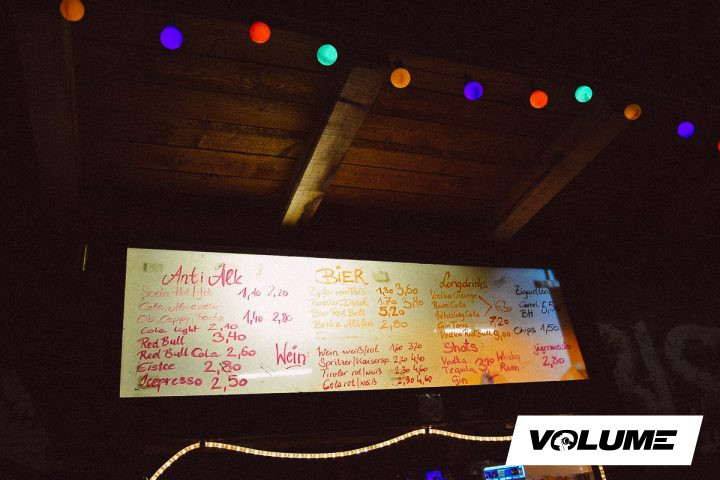 Anti Alk
Soda Hol/Joh 1,10 2,20
Cola,
Obi, Cappi, 1,40 2,80
Cola light 2,10
Red Bull 3,40
Red Bull Cola 2,60
Eistee 2,80
Icepresso 2,50
BiER
1,80 3,60
Radler, Diesel 1,70 3,40
Bier Red Bull 5,20
Becks Alkfrei 2,80
Wein
Wein weiß/rot 1,60 3,20
Spritzer/Kaisersp. 2,20 4,40
Tiroler rot/weiß 2,30 4,60
Cola rot/weiß 2,30 4,60
Longdrinks
Vodka Orange
Rum Cola 6,30
Whiskey Cola
Gin Tonic 7,20
Vodka Red Bull 9,00
Shots:
Vodka Whisky Jägermeister
Tequila 3,20 Rum 2,80
Gin
Zigaretten
Camel 5,5
BH
Chips 1,50
VOLUME